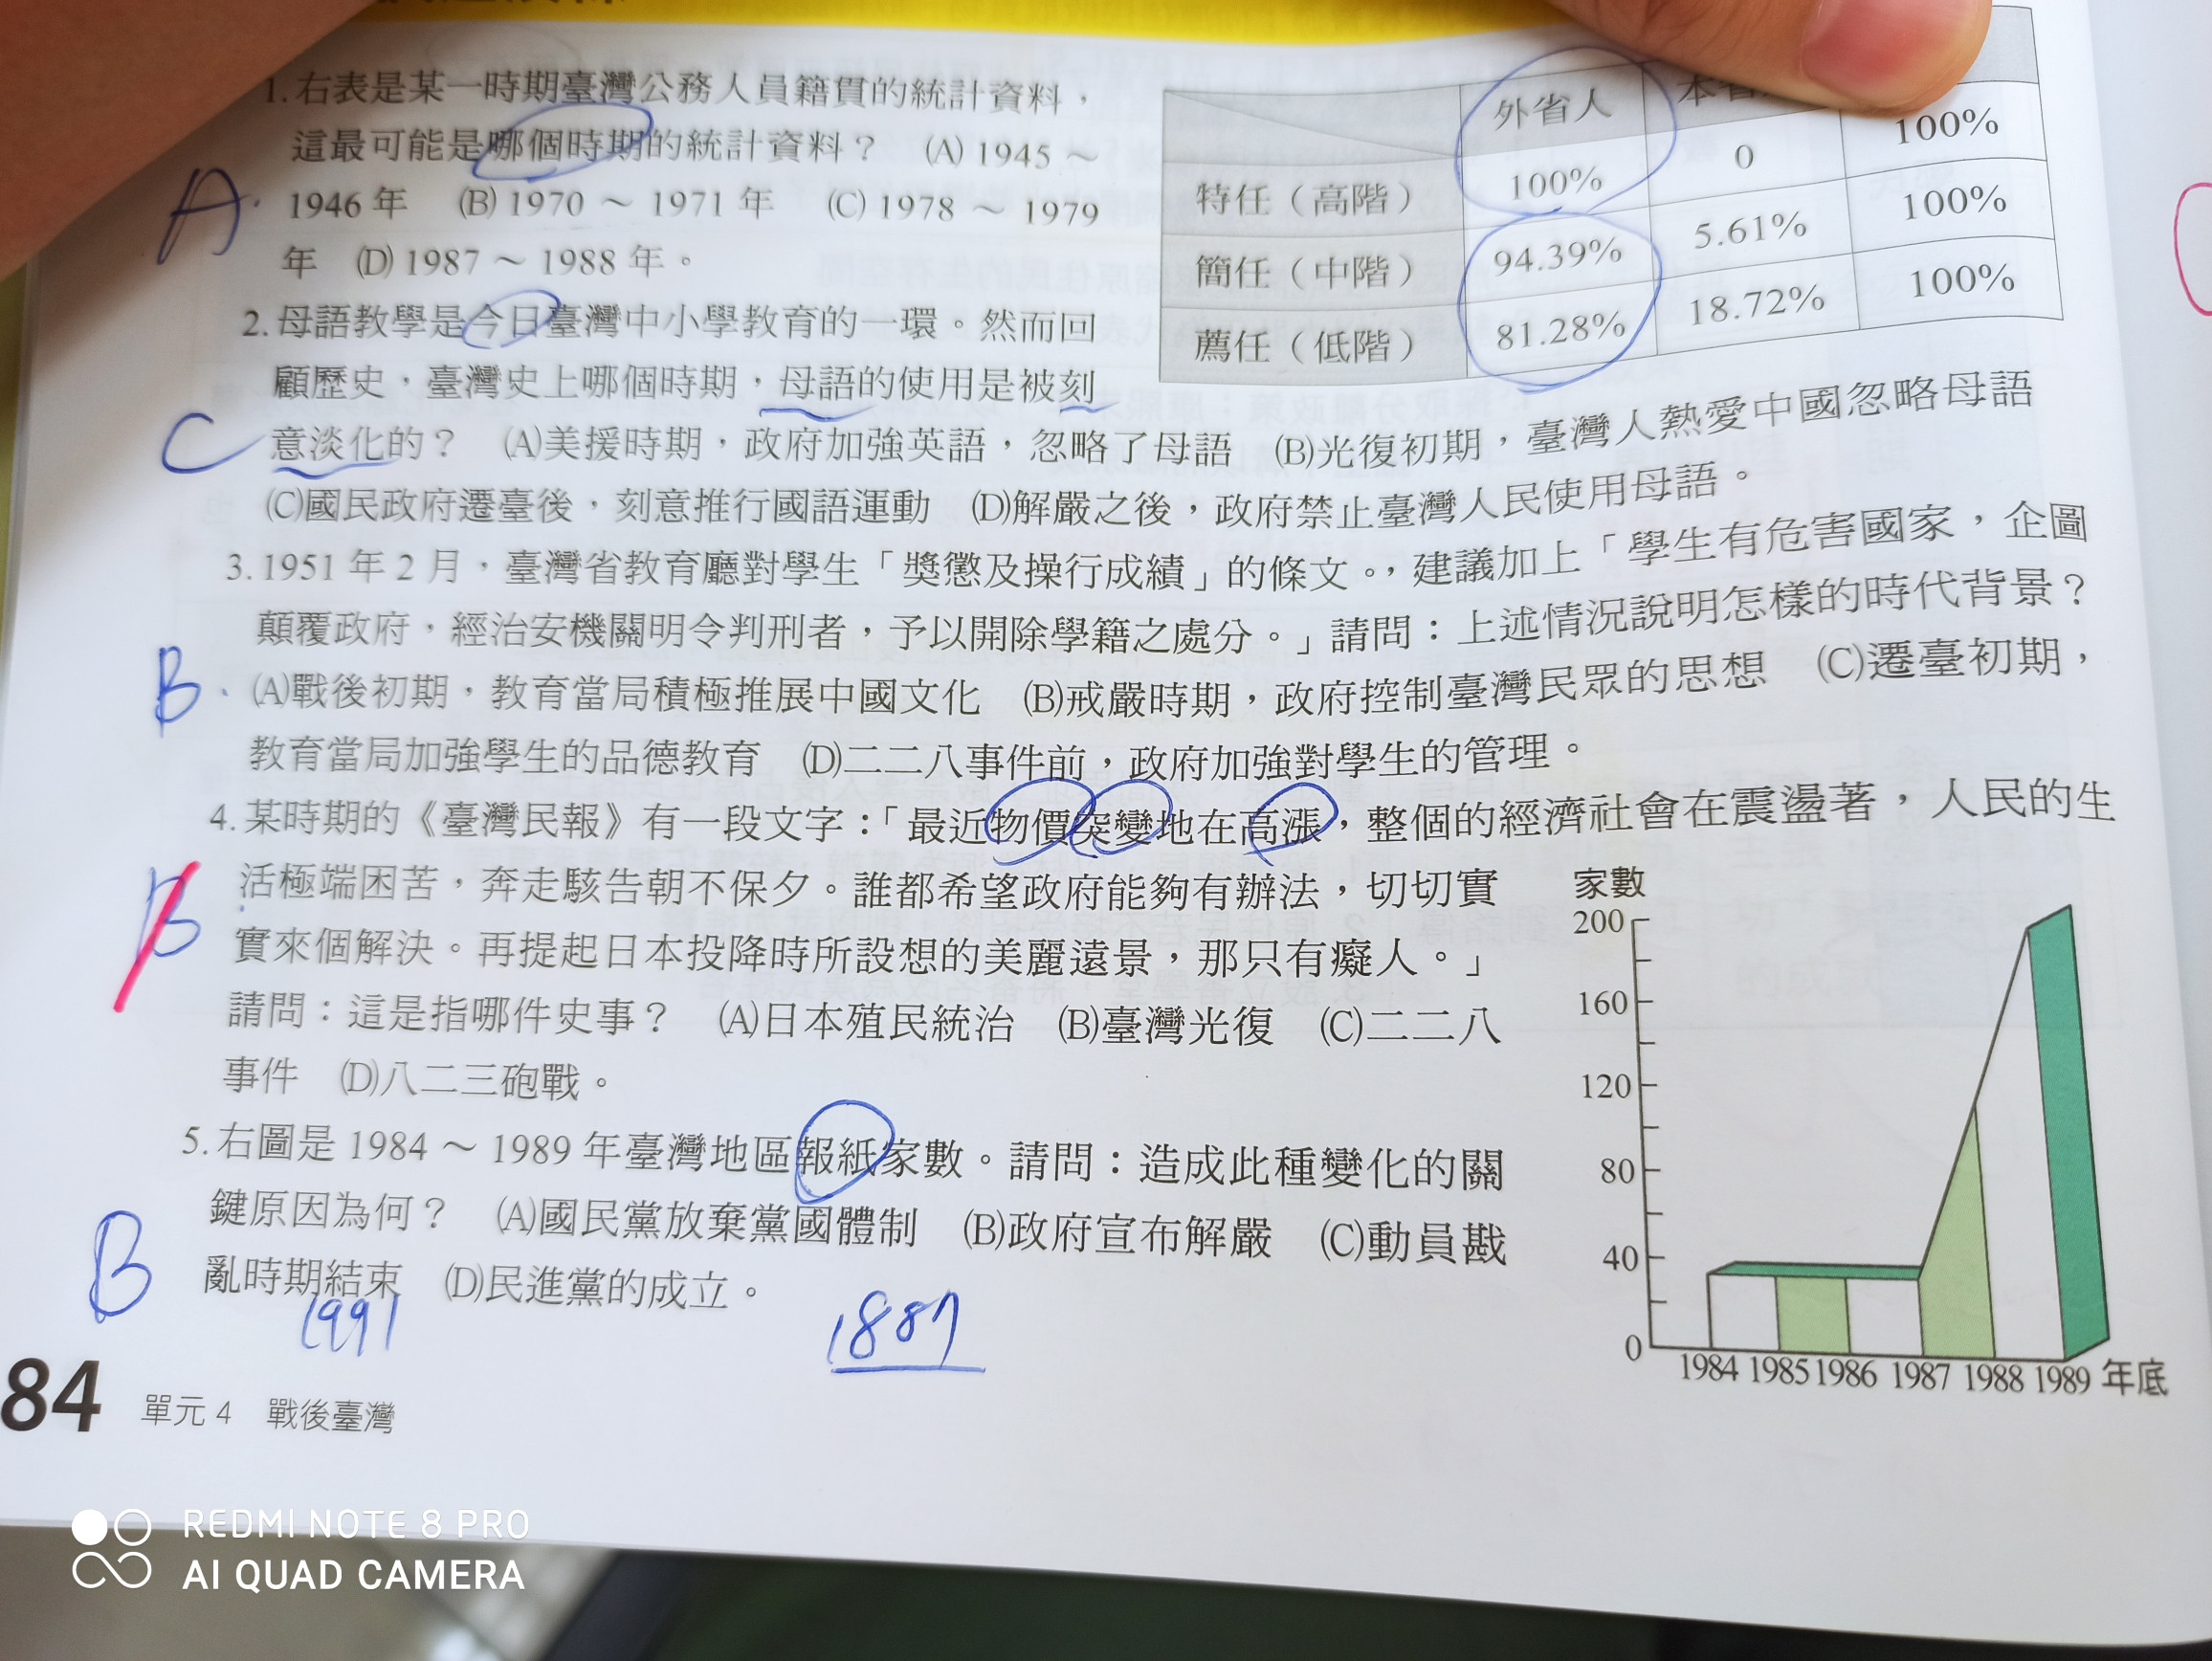 1.右表是某一時期臺灣公務人員籍貫的統計資料，
這最可能是哪個時期的統計資料？ (A) 1945 ～
1946 年 (B) 1970 ～ 1971 年 (C) 1978 ～ 1979
年 (D) 1987 ～ 1988 年。
A
外省人 本省
特任（高階） 100% 0 100%
簡任（中階） 94.39% 5.61% 100%
薦任（低階） 81.28% 18.72% 100%
2.母語教學是今日臺灣中小學教育的一環。然而回
顧歷史，臺灣史上哪個時期，母語的使用是被刻
意淡化的？ (A)美援時期，政府加強英語，忽略了母語 (B)光復初期，臺灣人熱愛中國忽略母語
(C)國民政府遷臺後，刻意推行國語運動 (D)解嚴之後，政府禁止臺灣人民使用母語。
C
3.1951 年 2 月，臺灣省教育廳對學生「獎懲及操行成績」的條文。，建議加上「學生有危害國家，企圖
顛覆政府，經治安機關明令判刑者，予以開除學籍之處分。」請問：上述情況說明怎樣的時代背景？
(A)戰後初期，教育當局積極推展中國文化 (B)戒嚴時期，政府控制臺灣民眾的思想 (C)遷臺初期，
教育當局加強學生的品德教育 (D)二二八事件前，政府加強對學生的管理。
B
4.某時期的《臺灣民報》有一段文字：「最近物價突變地在高漲，整個的經濟社會在震盪著，人民的生
活極端困苦，奔走駭告朝不保夕。誰都希望政府能夠有辦法，切切實
實來個解決。再提起日本投降時所設想的美麗遠景，那只有癡人。」
請問：這是指哪件史事？ (A)日本殖民統治 (B)臺灣光復 (C)二二八
事件 (D)八二三砲戰。
B
5.右圖是 1984 ～ 1989 年臺灣地區報紙家數。請問：造成此種變化的關
鍵原因為何？ (A)國民黨放棄黨國體制 (B)政府宣布解嚴 (C)動員戡
亂時期結束 (D)民進黨的成立。
B
1991
1887
家數
200
160
120
80
40
0
1984 1985 1986 1987 1988 1989 年底
84 單元 4 戰後臺灣
REDMI NOTE 8 PRO
AI QUAD CAMERA